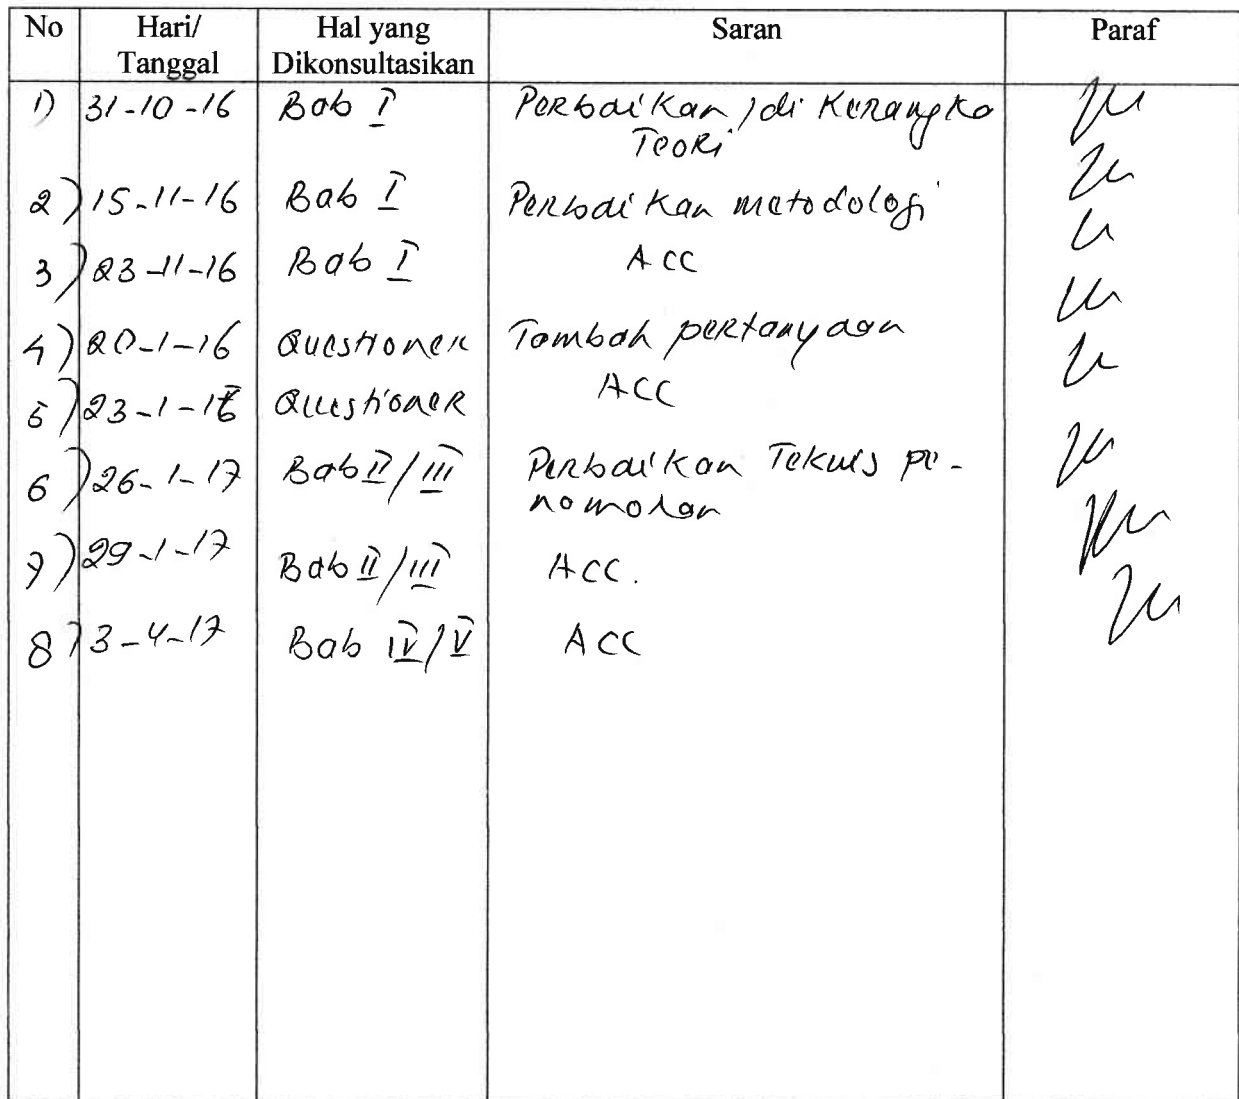 No Hari/ Hal yang Saran Paraf
Tanggal Dikonsultasikan
1) 31-10-16 Bab I Perbaikan di Kerangka
Teori
2) 15-11-16 Bab I Perbaikan metodologi
3) 23-11-16 Bab I ACC
4) 20-1-16 Questioner Tambah pertanyaan
5) 23-1-16 Questioner ACC
6) 26-1-17 Bab II/III Perbaikan Teknis pe-
nomoran
7) 29-1-17 Bab II/III ACC.
8) 3-4-17 Bab IV/V ACC